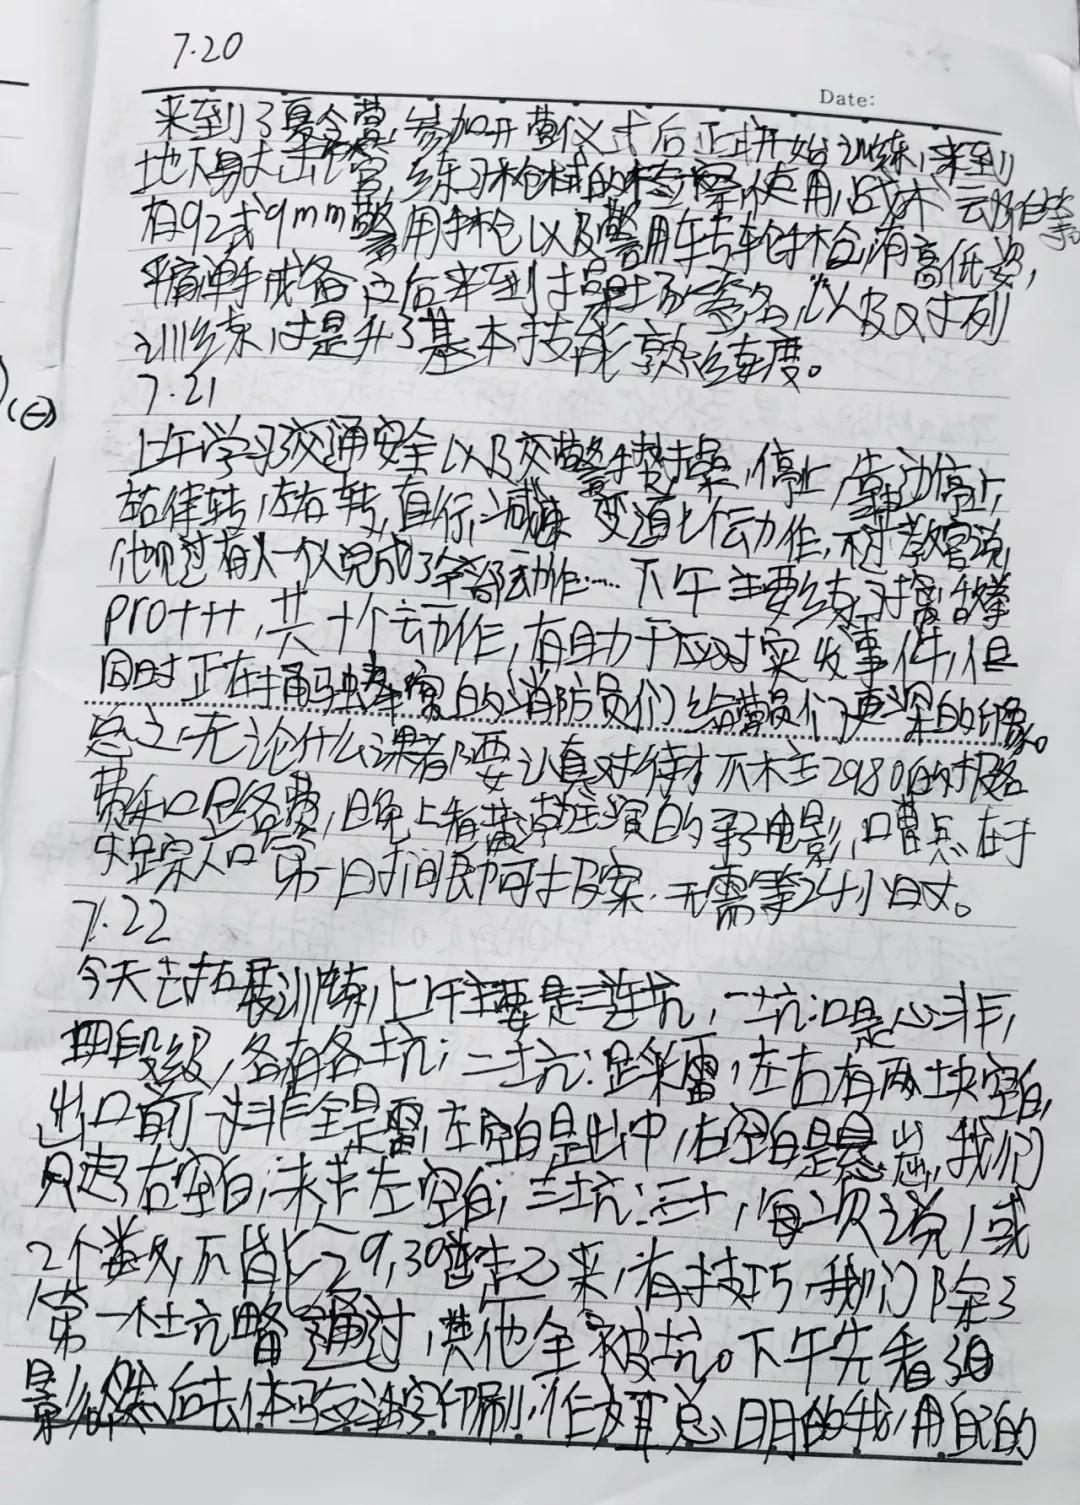 7.20
Date:
来到了夏令营,参加开营仪式后正式开始训练,来到
地下射击馆,练习枪械的检察,使用,战术运动等
有92式9mm警用手枪以及警用转轮手枪,有高低姿,
单手戒备之后来到操场签名,以及队列
训练,提升了基本技能熟练度。
7.21
上午学习了交通安全以及交警手势操,停止,靠边停止,
左右转,直行,减速 变道七个动作,不过教官说,
他见过有人一个人完成了全部动作……下午主要练习擒敌拳
pro+++,共十个动作,有助于应对突发事件,但
同时正在捅马蜂窝的消防员们给营员们更深的印象。
总之,无论什么课都要认真对待才不枉2980的报名
费和口足各费,晚上看黄演的电影,曹点在于
失踪人口第一时间即可报案,无需等24小时。
7.22
今天去拓展训练,上午主要是三连坑,一坑:口是心非,
四段级,各有各坑;二坑:踩雷,左右有两块空白,
出口前一排全是雷,左空白是出中,右空白是悬出,我们
只走右空白,未走左空白;三坑:三十,每次说1或
2个数,不能 29,30 来,有技巧,我们除了
第一坑略通过,其他全被坑。下午先看
影,然后去体验活字印刷,作为聪明的我,用自己的
(三)